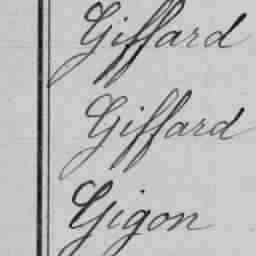 Giffard
Giffard
Gigon